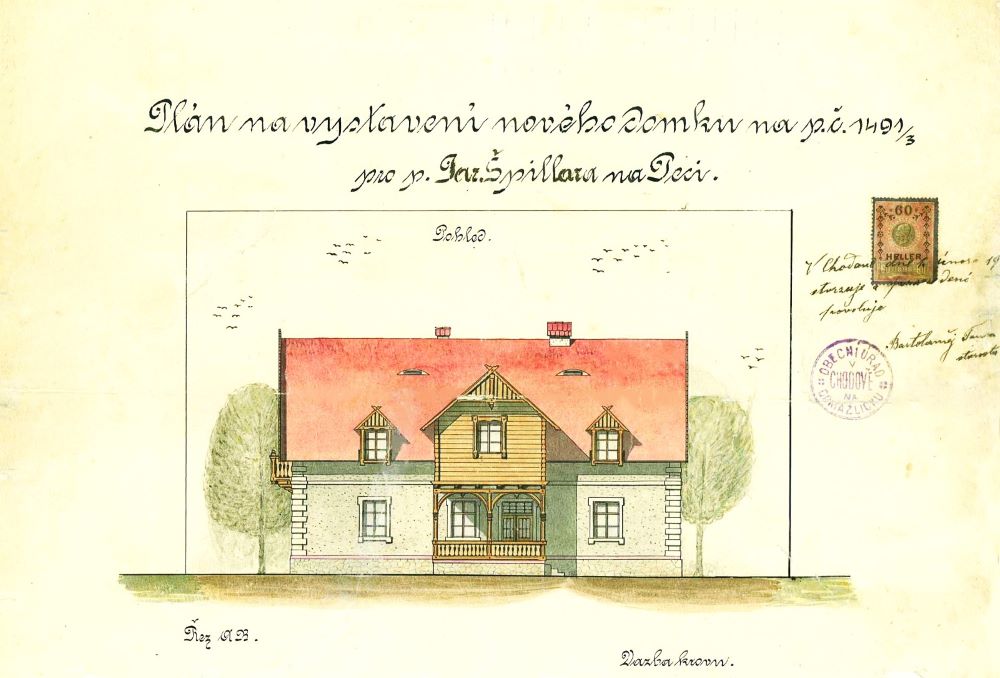 Plán na vystavení nového domku na p.č. 1491/3
pro p. Jar. Špillara na Peci.
Pohled.
60
HELLER
V Chodově dne
povoluje
Bartoloměj
starosta
OBECNÍ ÚŘAD
V
CHODOVĚ
NA
DOMAŽLICKU
Řez AB.
Vazba krovu.